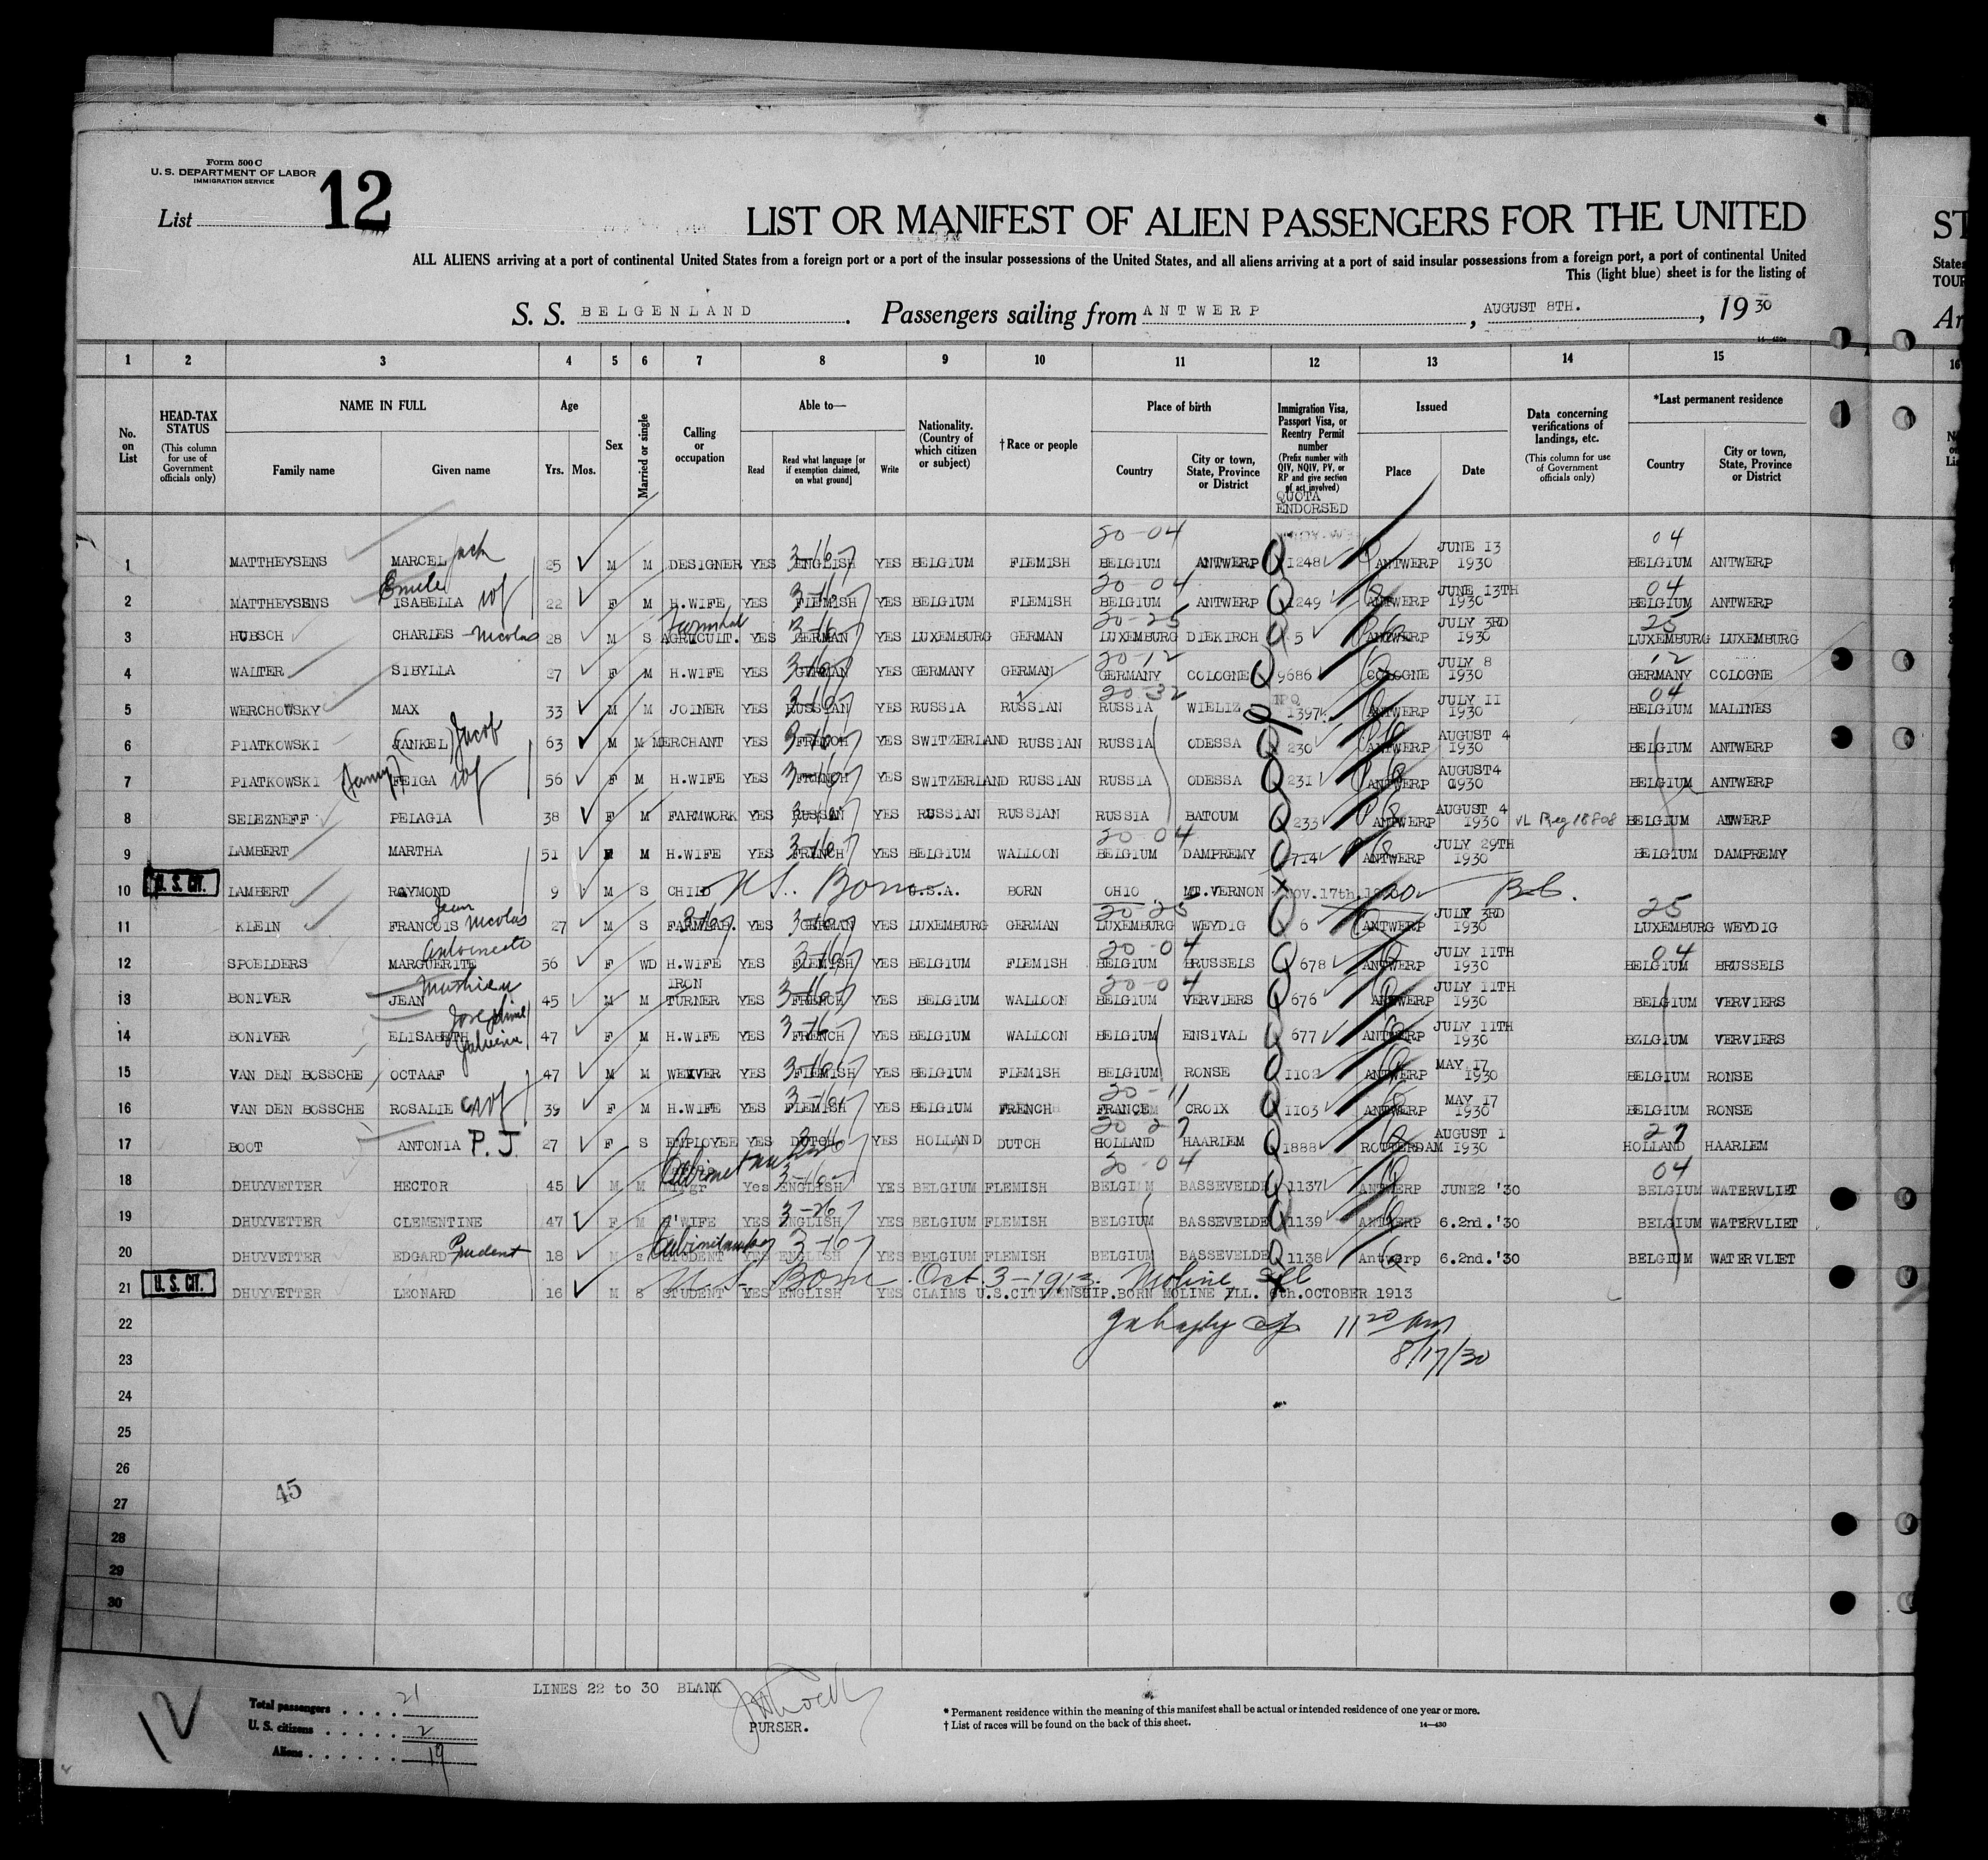 Form 500 C
U. S. DEPARTMENT OF LABOR
IMMIGRATION SERVICE
List 12
LIST OR MANIFEST OF ALIEN PASSENGERS FOR THE UNITED
ST
ALL ALIENS arriving at a port of continental United States from a foreign port or a port of the insular possessions of the United States, and all aliens arriving at a port of said insular possessions from a foreign port, a port of continental United
States
This (light blue) sheet is for the listing of
TOUR
S. S. BELGENLAND. Passengers sailing from ANTWERP, AUGUST 8TH., 19 30
Ar
1 2 3 4 5 6 7 8 9 10 11 12 13 14 15 16
No. on List
HEAD-TAX STATUS (This column for use of Government officials only)
NAME IN FULL Family name Given name
Age Yrs. Mos.
Sex
Married or single
Calling or occupation
Able to— Read Read what language [or if exemption claimed, on what ground] Write
Nationality. (Country of which citizen or subject)
†Race or people
Place of birth Country City or town, State, Province or District
Immigration Visa, Passport Visa, or Reentry Permit number (Prefix number with QIV, NQIV, PV, or RP and give section of act involved) QUOTA ENDORSED
Issued Place Date
Data concerning verifications of landings, etc. (This column for use of Government officials only)
*Last permanent residence Country City or town, State, Province or District
20-04 04
1 MATTHEYSENS MARCEL Jack 25 M M DESIGNER YES ENGLISH 3-16 YES BELGIUM FLEMISH BELGIUM ANTWERP Q 1248 ANTWERP JUNE 13 1930 BELGIUM ANTWERP
20-04 04
2 MATTHEYSENS Emile ISABELLA wf 22 F M H.WIFE YES FLEMISH 3-16 YES BELGIUM FLEMISH BELGIUM ANTWERP Q 1249 ANTWERP JUNE 13TH 1930 BELGIUM ANTWERP
20-25 25
3 HUBSCH CHARLES Nicolas 28 M S AGRICULT. YES GERMAN 3-16 YES LUXEMBURG GERMAN LUXEMBURG DIEKIRCH Q 5 ANTWERP JULY 3RD 1930 LUXEMBURG LUXEMBURG
20-12 12
4 WALTER SIBYLLA 27 F M H.WIFE YES GERMAN YES GERMANY GERMAN GERMANY COLOGNE Q 9686 COLOGNE JULY 8 1930 GERMANY COLOGNE
20-32 04
5 WERCHOWSKY MAX 33 M M JOINER YES RUSSIAN YES RUSSIA RUSSIAN RUSSIA WIELIZ NPQ 1397 ANTWERP JULY 11 1930 BELGIUM MALINES
6 PIATKOWSKI (JANKEL) Jacob 63 M M MERCHANT YES FRENCH YES SWITZERLAND RUSSIAN RUSSIA ODESSA Q 230 ANTWERP AUGUST 4 1930 BELGIUM ANTWERP
7 PIATKOWSKI (Fanny) FEIGA wf 56 F M H.WIFE YES FRENCH YES SWITZERLAND RUSSIAN RUSSIA ODESSA Q 231 ANTWERP AUGUST4 1930 BELGIUM ANTWERP
8 SELEZNEFF PELAGIA 38 F M FARMWORK YES RUSSIAN YES RUSSIAN RUSSIAN RUSSIA BATOUM Q 233 ANTWERP AUGUST 4 1930 VL Reg 18808 BELGIUM ANWERP
20-04
9 LAMBERT MARTHA 51 F M H.WIFE YES FRENCH YES BELGIUM WALLOON BELGIUM DAMPREMY Q 714 ANTWERP JULY 29TH 1930 BELGIUM DAMPREMY
10 U. S. CIT. LAMBERT RAYMOND 9 M S CHILD U.S. Born U.S.A. BORN OHIO MT.VERNON Nov.17th.1920
20-25 25
11 KLEIN FRANCOIS Jean Nicolas 27 M S FARMLAB. YES GERMAN YES LUXEMBURG GERMAN LUXEMBURG WEYDIG Q 6 ANTWERP JULY 3RD 1930 LUXEMBURG WEYDIG
20-04 04
12 SPOELDERS MARGUERITE Antoinette 56 F WD H.WIFE YES FLEMISH YES BELGIUM FLEMISH BELGIUM BRUSSELS Q 678 ANTWERP JULY 11TH 1930 BELGIUM BRUSSELS
20-04
13 BONIVER JEAN Mathieu 45 M M IRON TURNER YES FRENCH YES BELGIUM WALLOON BELGIUM VERVIERS Q 676 ANTWERP JULY 11TH 1930 BELGIUM VERVIERS
14 BONIVER ELISABETH Josephine 47 F M H.WIFE YES FRENCH YES BELGIUM WALLOON BELGIUM ENSIVAL Q 677 ANTWERP JULY 11TH 1930 BZLGIUM VERVIERS
15 VAN DEN BOSSCHE OCTAAF 47 M M WEAVER YES FLEMISH YES BELGIUM FLEMISH BELGIUM RONSE Q 1102 ANTWERP MAY 17 1930 BELGIUM RONSE
20-11
16 VAN DEN BOSSCHE ROSALIE wf 39 F M H.WIFE YES FLEMISH YES BELGIUM FRENCH FRANCE CROIX Q 1103 ANTWERP MAY 17 1930 BELGIUM RONSE
20 27 27
17 BOOT ANTONIA P. J. 27 F S EMPLOYEE YES DUTCH YES HOLLAND DUTCH HOLLAND HAARLEM Q 1888 ROTTERDAM AUGUST 1 1930 HOLLAND HAARLEM
20-04 04
18 DHUYVETTER HECTOR 45 M M Cabinetmaker Yes ENGLISH YES BELGIUM FLEMISH BELGIUM BASSEVELDE Q 1137 ANTWERP JUNE2 '30 BELGIUM WATERVLIET
19 DHUYVETTER CLEMENTINE 47 F M H'WIFE YES ENGLISH YES BELGIUM FLEMISH BELGIUM BASSEVELDE Q 1139 ANTWERP 6.2nd.'30 BELGIUM WATERVLIET
20 DHUYVETTER EDGARD Prudent 18 M S STUDENT Cabinetmaker YES ENGLISH YES BELGIUM FLEMISH BELGIUM BASSEVELDE Q 1138 Antwerp 6.2nd.'30 BELGIUM WATERVLIET
U.S. Born Oct. 3-1913. Moline Ill
21 U. S. CIT. DHUYVETTER LEONARD 16 M S STUDENT YES ENGLISH YES CLAIMS U.S.CITIZENSHIP.BORN MOLINE ILL. 6th.OCTOBER 1913
22 11 20 am
23 8/17/30
24
25
26
27 45
28
29
30
LINES 22 to 30 BLANK
12
Total passengers 21
U. S. citizens 2
Aliens 19
PURSER.
* Permanent residence within the meaning of this manifest shall be actual or intended residence of one year or more.
† List of races will be found on the back of this sheet.
14—430